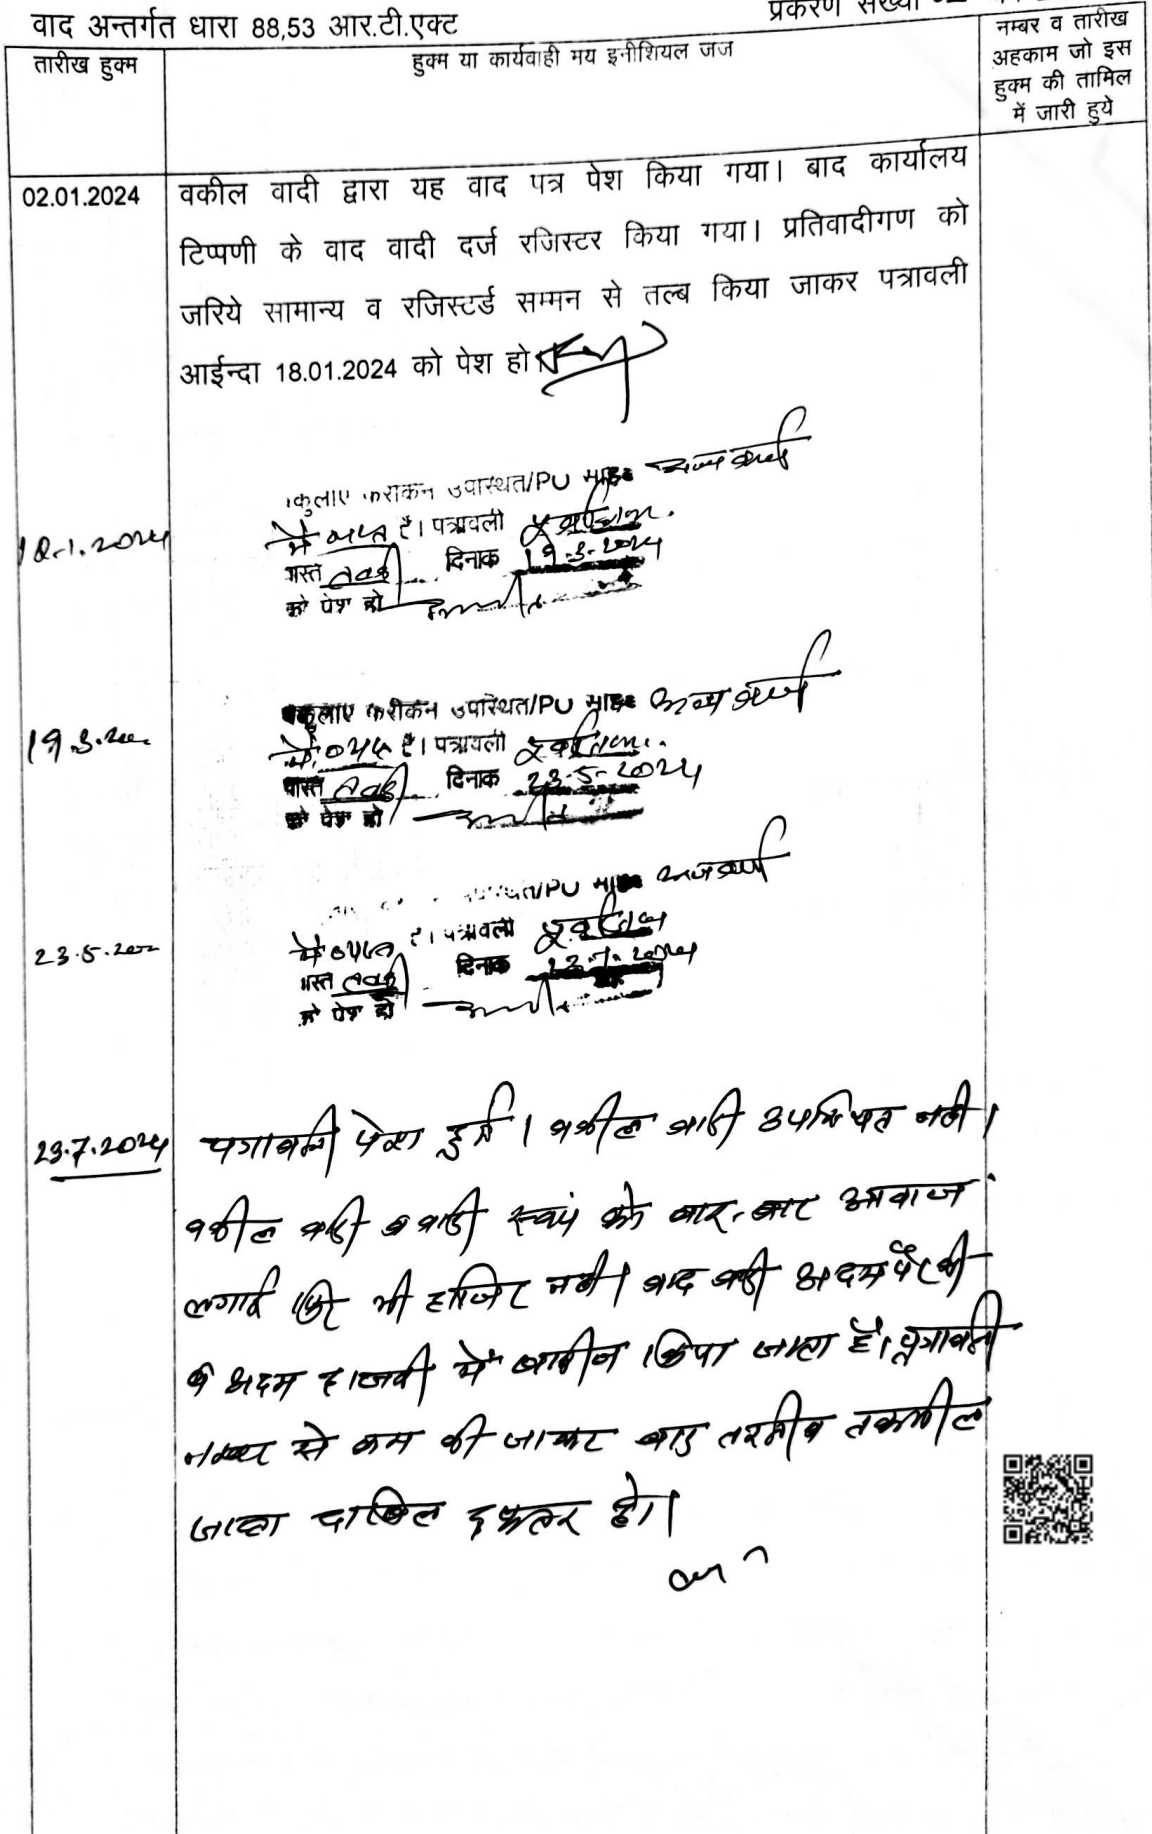 प्रकरण संख्या
वाद अन्तर्गत धारा 88,53 आर.टी.एक्ट
तारीख हुक्म
हुक्म या कार्यवाही मय इनीशियल जज
नम्बर व तारीख
अहकाम जो इस
हुक्म की तामिल
में जारी हुये
02.01.2024
वकील वादी द्वारा यह वाद पत्र पेश किया गया। बाद कार्यालय
टिप्पणी के वाद वादी दर्ज रजिस्टर किया गया। प्रतिवादीगण को
जरिये सामान्य व रजिस्टर्ड सम्मन से तल्ब किया जाकर पत्रावली
आईन्दा 18.01.2024 को पेश हो।
18.1.2024
उपस्थित/PU अन्य कार्य
में व्यस्त है। पत्रावली पूर्वानुसार
दिनांक 19.3.2024
को पेश हो
19.3.202
वकुलाए फरीकेन उपस्थित/PU अन्य कार्य
में व्यस्त है। पत्रावली
दिनांक 23.5.2024
को पेश हो
23.5.202
/PU अन्य कार्य
में व्यस्त है। पत्रावली
दिनांक 23.7.2024
को पेश हो
23.7.2024
पत्रावली पेश हुई। वकील वादी उपस्थित नही।
वकील वादी व वादी स्वयं को बार-बार आवाज
लगाई फिर भी हाजिर नही। वाद वादी अदम पैरवी
व अदम हाजरी में खारीज किया जाता है। पत्रावली
नम्बर से कम की जाकर बाद तरतीब तकमील
जाब्ता दाखिल दफ्तर हो।